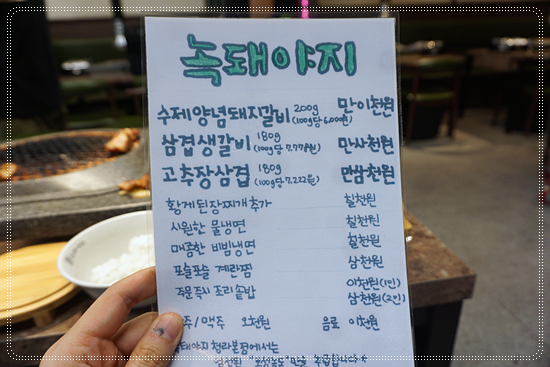 녹돼야지
수제양념돼지갈비 200g (100g당 6,000원) 만이천원
삼겹생갈비 180g (100g당 7.777원) 만사천원
고추장삼겹 180g (100g당 7.222원) 만삼천원
황게된장찌개추가 칠천원
시원한 물냉면 칠천원
매콤한 비빔냉면 칠천원
포슬포슬 계란찜 삼천원
주문즉시 조리솥밥 이천원(1인)
삼천원(2인)
주/맥주 오천원 음료 이천원
돼야지 청라본점에서는